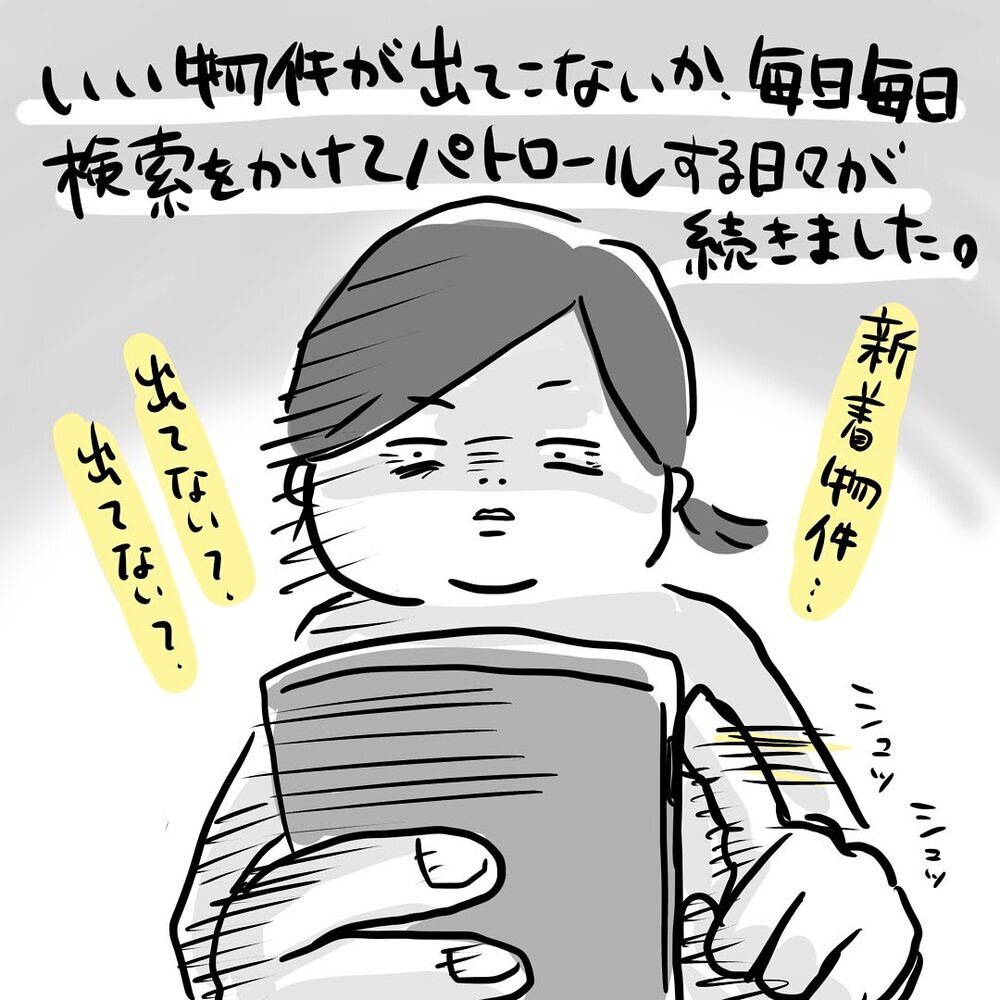 いい物件が出てこないか、毎日毎日
検索をかけてパトロールする日々が
続きました。
新着物件…
出てない?
出てない?
シュッ
シュッ